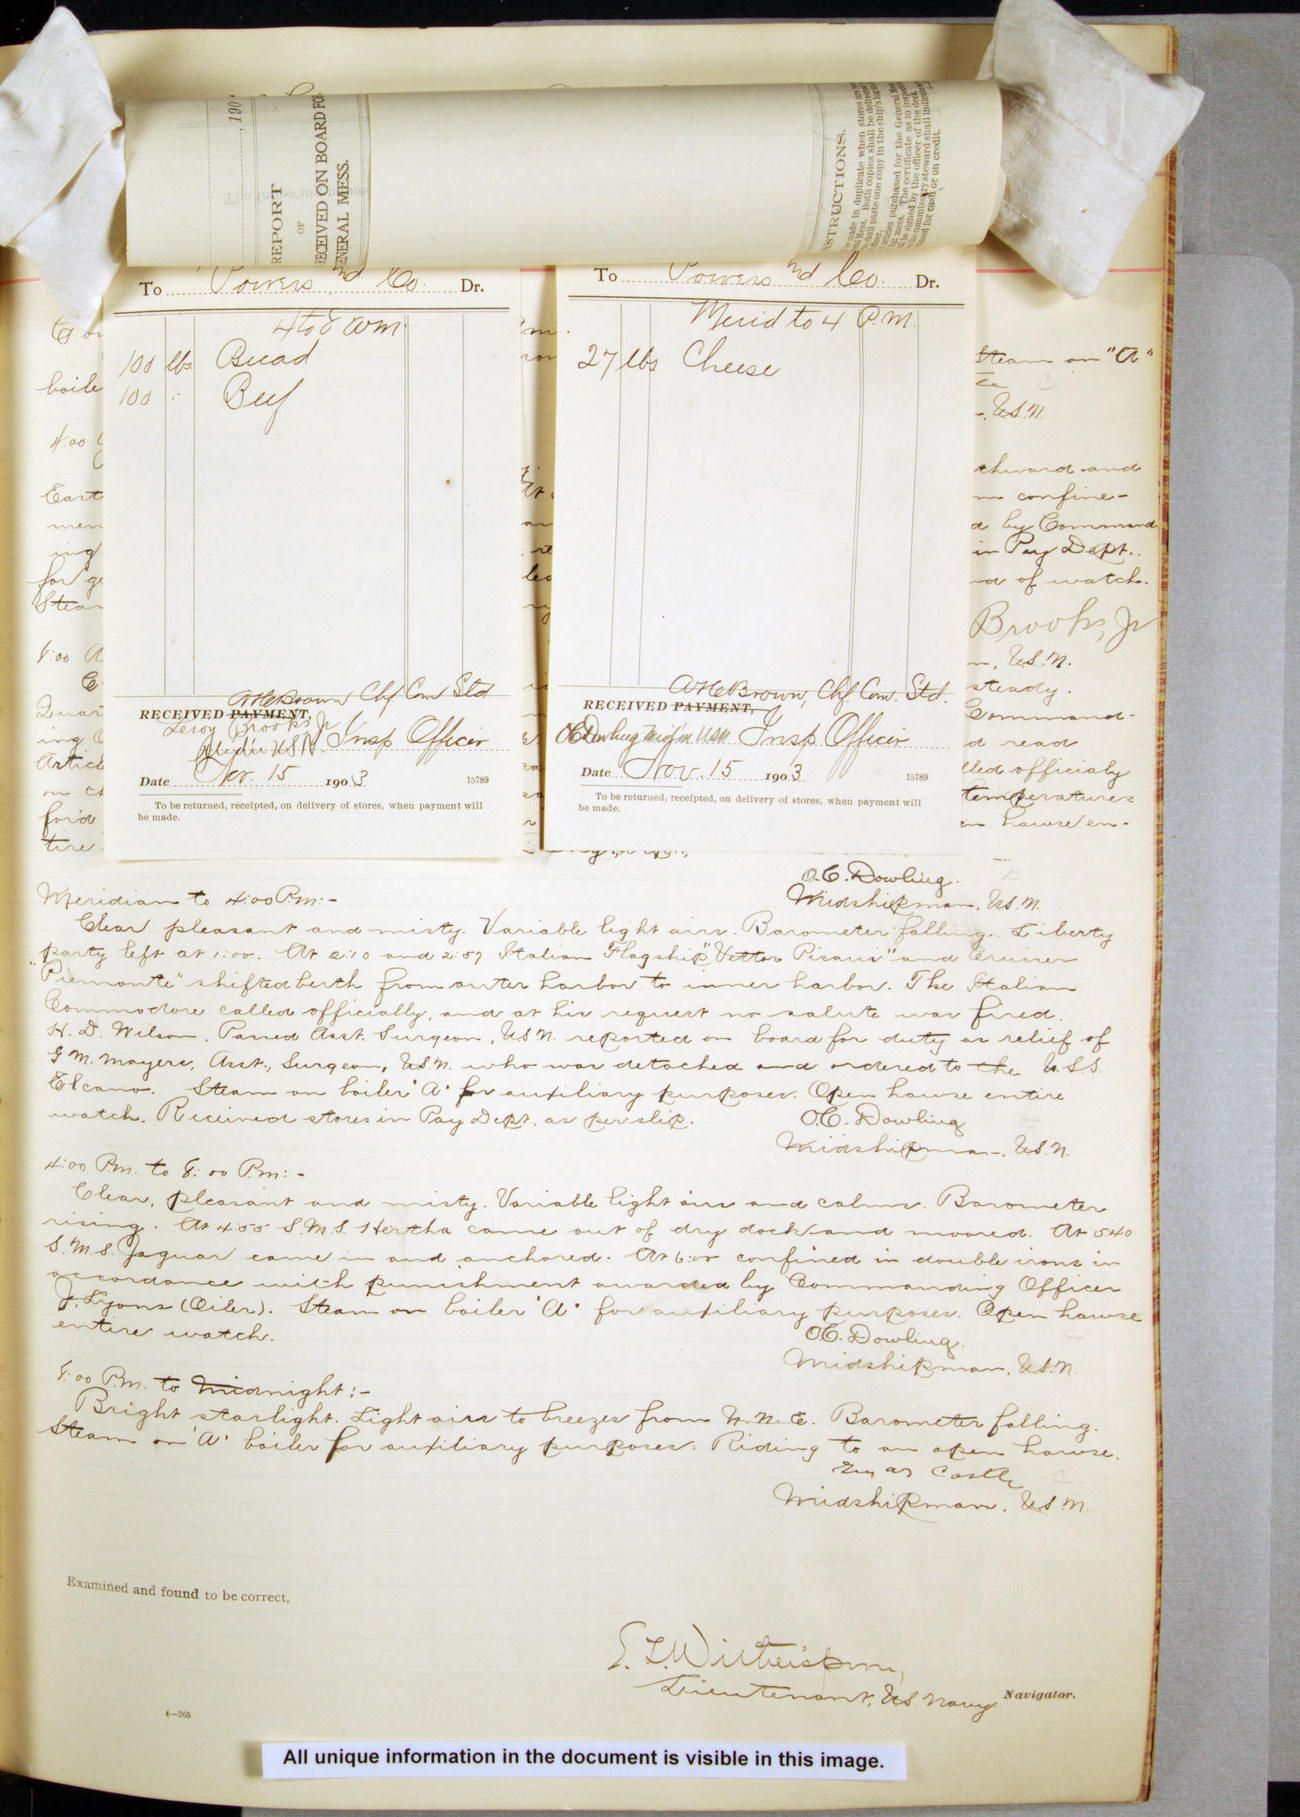 , 190
REPORT
OF
RECEIVED ON BOARD FO
GENERAL MESS.
STRUCTIONS.
made in duplicate when stores are
Mess. Both copies shall be delivered
shall paste one copy in the ship's log
ticles purchased for the General
mess. The certificate as to inspe
be signed by the officer of the deck
the commissary steward shall indicate
ased for cash or on credit.
To Powers and Co. Dr.
4 to 8 am.
100 lbs Bread
100 " Beef
AHeBrown, Chf Com Std
RECEIVED PAYMENT,
Leroy Brooks Jr
Mid'n USN. Insp Officer
Date Nov. 15 1903
15789
To be returned, receipted, on delivery of stores, when payment will
be made.
To Powers and Co. Dr.
Merid to 4 P.M.
27 lbs Cheese
AHeBrown, Chf. Com. Std.
RECEIVED PAYMENT,
OCDowling Mid'n USN Insp Officer
Date Nov. 15 1903
15789
To be returned, receipted, on delivery of stores, when payment will
be made.
boile
4:00
East
men
ing
for ge
Stea
8:00 A
C
Quar
ing
Artic
on
for'd
tire
Steam on "A"
U.S.N.
thward and
confine-
d by Command
in Pay Dept.
nd of watch.
Brooks, Jr
n, U.S.N.
steady.
Command-
d read
lled officially
temperatures
hawse en-
O.C. Dowling.
Midshipman, U.S.N.
Meridian to 4:00 P.m:-
Clear pleasant and misty. Variable light airs. Barometer falling. Liberty
party left at 1:00. At 2:10 and 2:57 Italian Flagship "Vettor Pisani" and Cruiser
"Piemonte" shifted berth from outer harbor to inner harbor. The Italian
Commodore called officially, and at his request no salute was fired.
H. D. Wilson, Passed Asst. Surgeon, U.S.N. reported on board for duty as relief of
G. M. Mayers, Asst., Surgeon, U.S.N. who was detached and ordered to the U.S.S.
Elcano. Steam on boiler "A" for auxiliary purposes. Open hawse entire
watch. Received stores in Pay Dept. as per slip.
O.C. Dowling
Midshipman, U.S.N.
4:00 P.m. to 8:00 P.m:-
Clear, pleasant and misty. Variable light airs and calms. Barometer
rising. At 4:55 S.M.S. Hertha came out of dry dock and moored. At 5:40
S.M.S. Jaguar came in and anchored. At 6:00 confined in double irons in
accordance with punishment awarded by Commanding Officer
J. Lyons (Oiler). Steam on boiler "A" for auxiliary purposes. Open hawse
entire watch.
O.C. Dowling.
Midshipman, U.S.N.
8:00 P.m. to Midnight:-
Bright starlight. Light airs to breezes from N.N.E. Barometer falling.
Steam on "A" boiler for auxiliary purposes. Riding to an open hawse.
Castle
Midshipman, U.S.N.
Examined and found to be correct.
Witherspoon,
Lieutenant, U.S. Navy Navigator.
4—265
All unique information in the document is visible in this image.